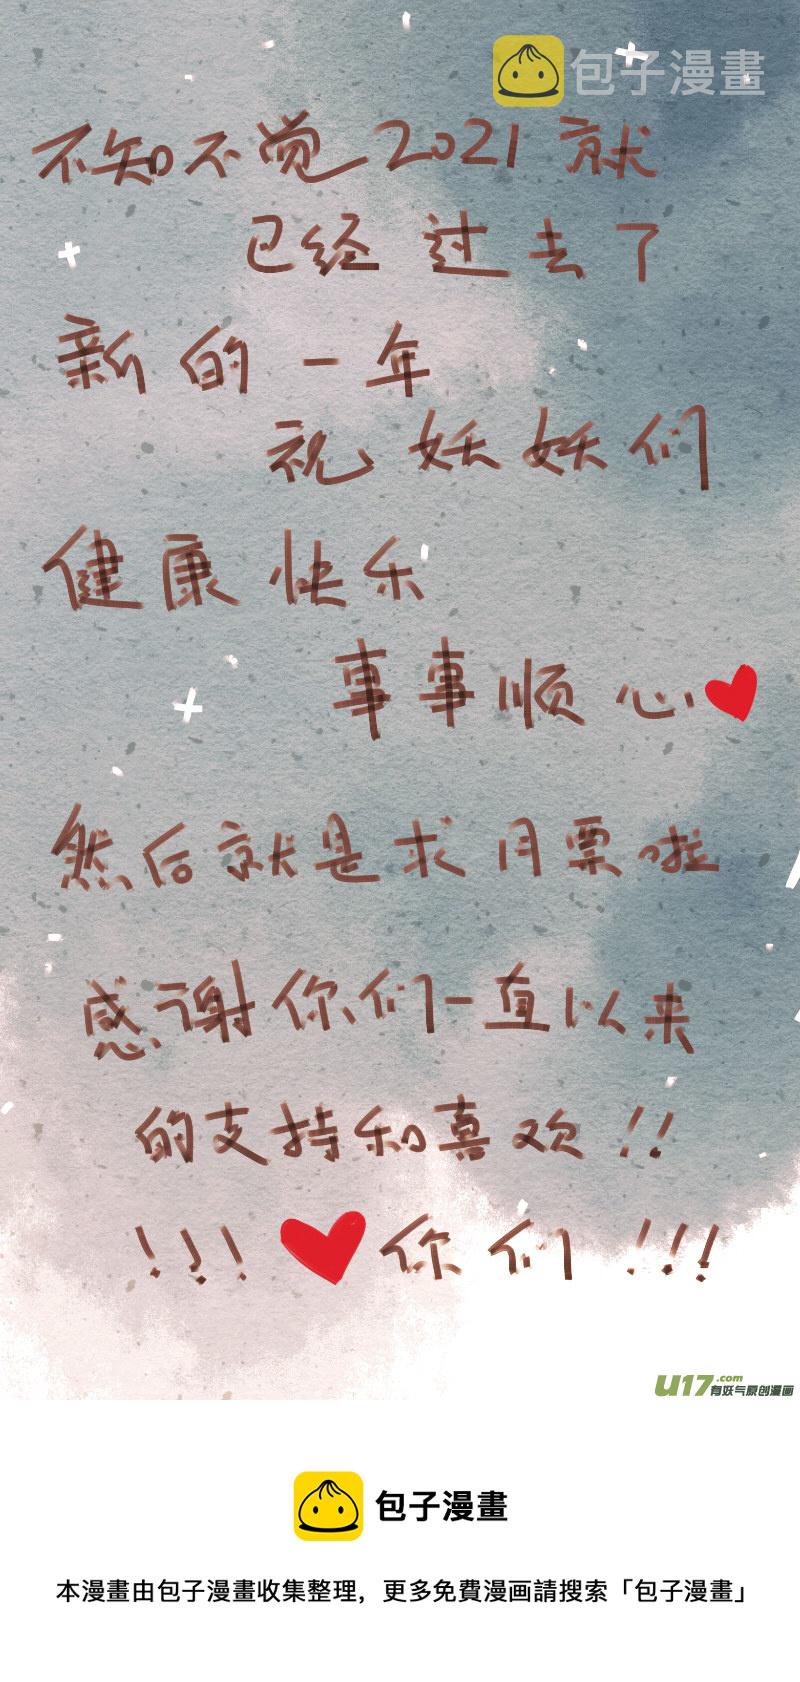 包子漫畫
不知不觉2021就
已经过去了
新的一年
祝妖妖们
健康快乐
事事顺心
然后就是求月票啦
感谢你们一直以来
的支持和喜欢!!
!!!你们!!!
U17.com
有妖气原创漫画
包子漫畫
本漫畫由包子漫畫收集整理,更多免費漫画請搜索「包子漫畫」